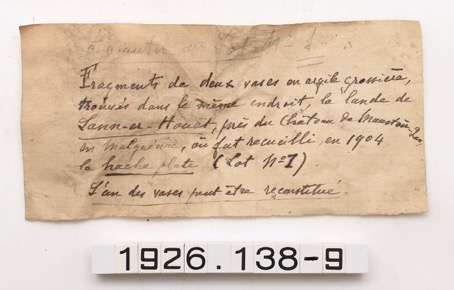 a ajouter
Fragments de deux vases en argile grossière,
trouvés dans le même endroit, la lande de
Lann-er-Houët, près du Château de
en Malguénac, où fut recueillie en 1904
la hache plate (Lot No 1).
L'un des vases peut être reconstitué.
1926.138-9